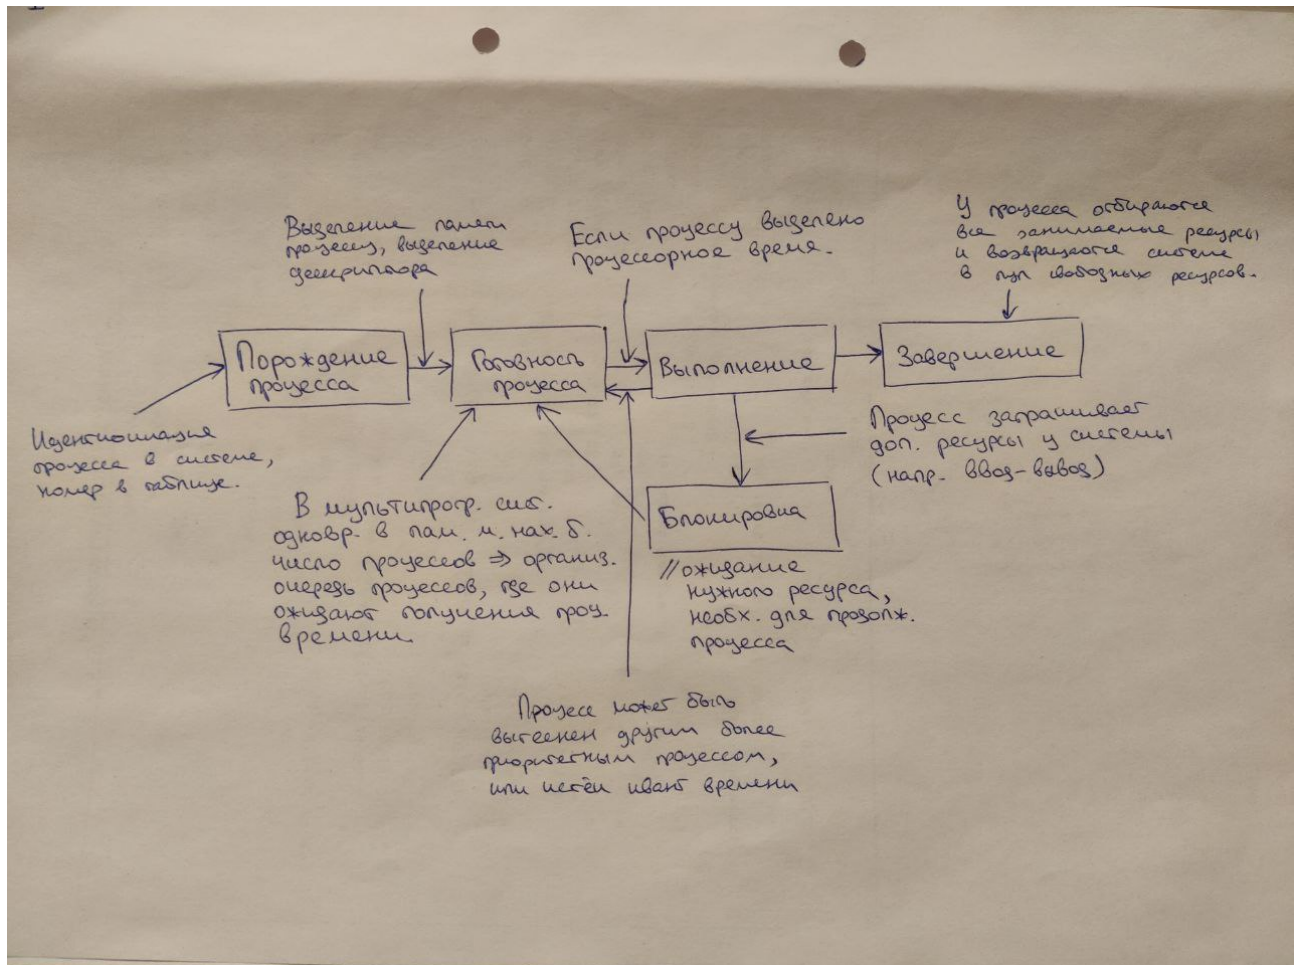 Выделение памяти
процессу, выделение
дескриптора
Если процессу выделено
процессорное время.
У процесса отбираются
все занимаемые ресурсы
и возвращаются системе
в пул свободных ресурсов.
Порождение
процесса
Готовность
процесса
Выполнение
Завершение
Идентификация
процесса в системе,
номер в таблице.
Процесс запрашивает
доп. ресурсы у системы
(напр. ввод-вывод)
В мультипрогр. сист.
одновр. в пам. м. нах. б.
число процессов ⇒ организ.
очередь процессов, где они
ожидают получения проц.
времени.
Блокировка
//ожидание
нужного ресурса,
необх. для продолж.
процесса
Процесс может быть
вытеснен другим более
приоритетным процессом,
или истёк квант времени